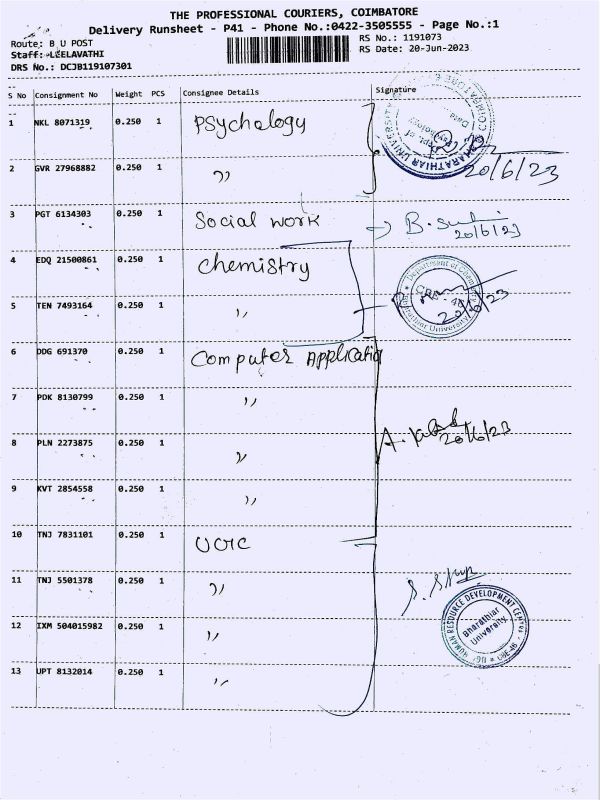 THE PROFESSIONAL COURIERS, COIMBATORE
Delivery Runsheet - P41 - Phone No.:0422-3505555 - Page No.:1
Route: B U POST
Staff: LEELAVATHI
DRS No.: DCJB119107301
RS No.: 1191073
RS Date: 20-Jun-2023
S No Consignment No Weight PCS Consignee Details Signature
1 NKL 8071319 0.250 1 Psychology
BHARATHIAR UNIVERSITY
20/6/23
2 GVR 27968882 0.250 1 ,,
3 PGT 6134303 0.250 1 Social work
20/6/23
4 EDQ 21500861 0.250 1 Chemistry
Department of Chemistry
Bharathiar University
CBE - 46
5 TEN 7493164 0.250 1 ,,
6 DDG 691370 0.250 1 Computer Applicatio
7 PDK 8130799 0.250 1 ,,
8 PLN 2273875 0.250 1 ,,
20/6/23
9 KVT 2854558 0.250 1 ,,
10 TNJ 7831101 0.250 1
11 TNJ 5501378 0.250 1 ,,
12 IXM 504015982 0.250 1 ,,
HUMAN RESOURCE DEVELOPMENT CENTRE
Bharathiar
University
CBE-46
13 UPT 8132014 0.250 1 ,,